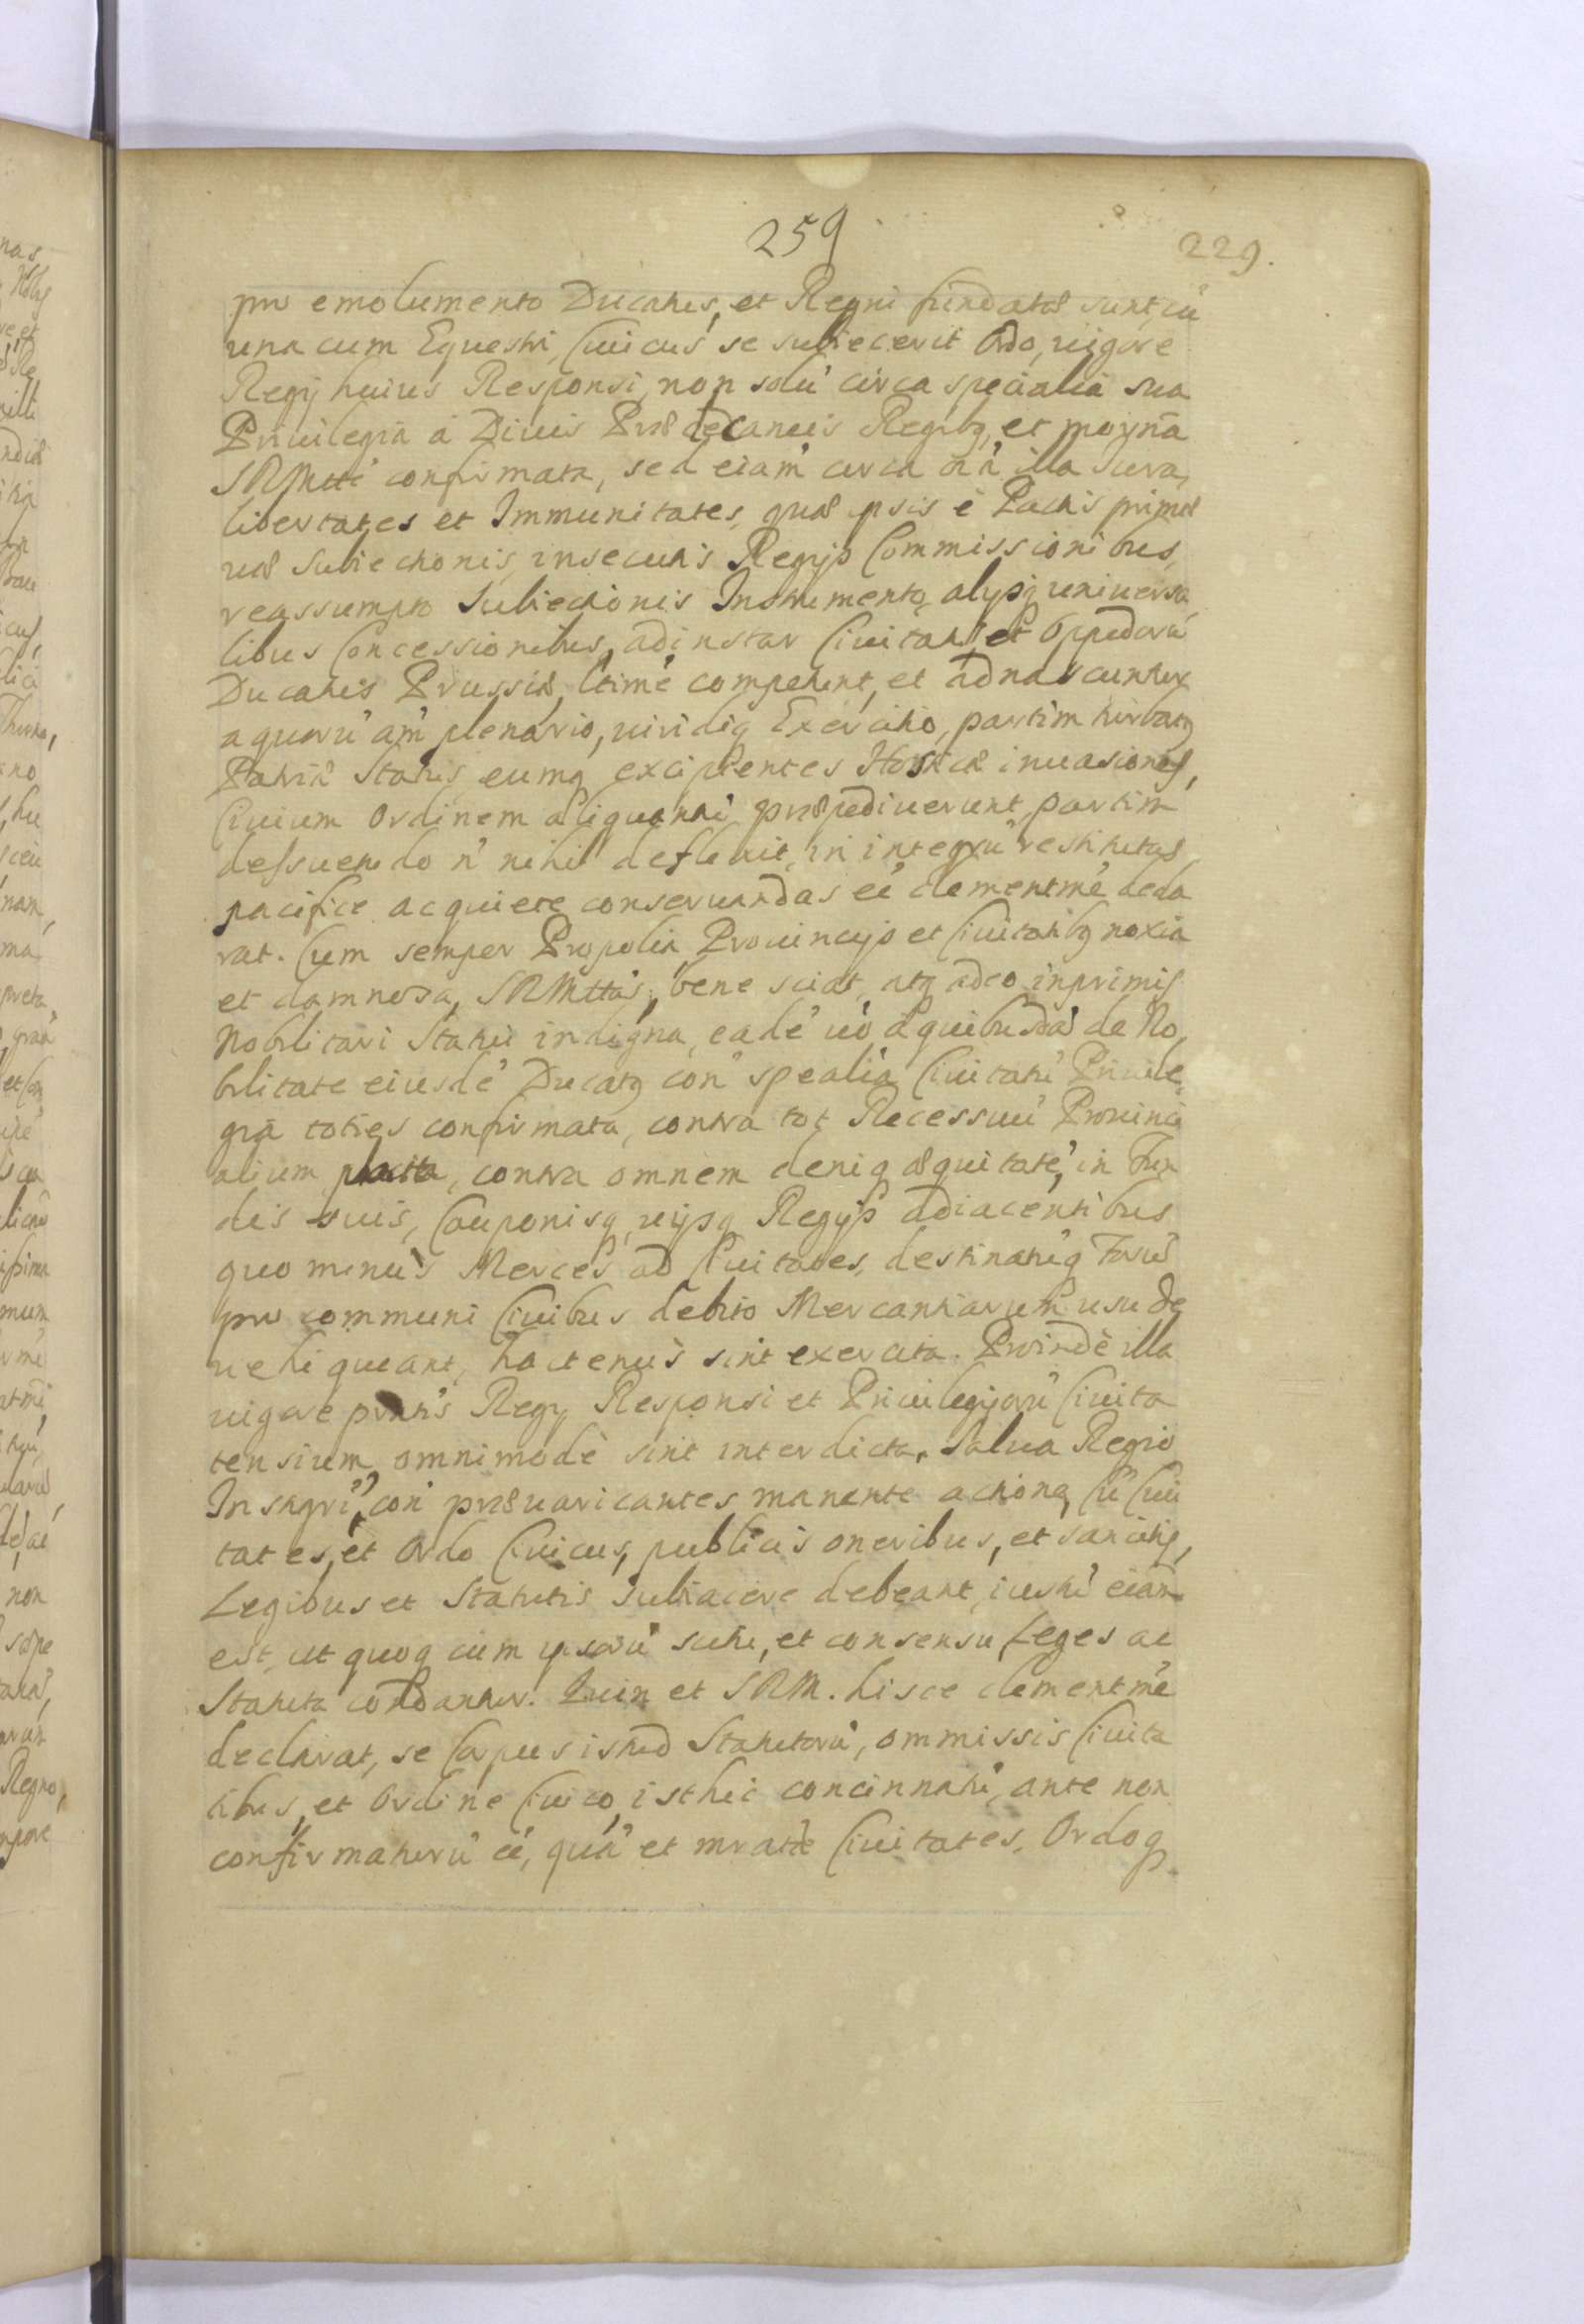 259
229.
pro emolumento Ducatus, et Regni fundatæ sunt, cū
una cum Equestri, Ciuicus se subiecerit Ordo, uigore
Regij huius Responsi, non solū circa specialia sua
Priuilegia á Diuis Prædecaneis Regibq, et
SRMtte confirmata, sed eiam circa oīa illa Iura,
libertates et Immunitates, quæ ipsis é Pactis primæ
uæ Subiectionis, insecutis Regijs Commissionibus,
reassumpto Subiectionis Instrumento, alijsq uniuersa
libus Concessionibus, adinstar Ciuitatū et Oppidorū
Ducatus Prussiæ, ltimé competunt, et adnascuntur
a quorū am plenario, uiridiq Exercitio, partim turbatq
Patriæ Status, eumq excipientes Hosticæ inuasiones,
Ciuium Ordinem aliquantū præpediuerunt, partim
dessuetudo ñ nihil defleuit, in integrū restitutas,
pacifice ac quiete conseruandas eē clementmé decla
rat. Cum semper Propolia Prouincijs et Ciuitatibq noxia
et damnosa, SRMttas, bene sciat, atq adeo inprimis
Nobilitari Statui indigna, eadē uó á quibusdā de No,
bilitate eiusdē Ducatq con spealia Ciuitatū Priuile,
gia toties confirmata, contra tot Recessuū Prouinci
alium placita, contra omnem deniq æquitatē, in Fun
dis suis, Cauponisq, uijsq Regijs adiacentibus
quo minus Merces ad Ciuitates, destinatūq Forū
pro communi Ciuibus debito Mercantiarum usu de
uehi queant, hactenus sint exercita. Proindè illa
uigore prntis Regij Responsi et Priuilegiorū Ciuita
tensium omnimodè sint interdicta, Salua Regio
Instigri, con præuaricantes manente actione, Cū Ciui
tates, et Ordo Ciuicus, publicis oneribus, et sancitis,
Legibus et Statutis subiacere debeant, iustū eiam
est, ut quoq cum ipsorū scitu, et consensu Leges ac
Statuta condantur. Quin et SRM. hisce clementmé
declarat, se Corpus istud Statutorū, ommissis Ciuita
tibus, et Ordine Ciuico, isthic concinnatū, ante non
confirmaturū eē, quā et mratæ Ciuitates, Ordoq